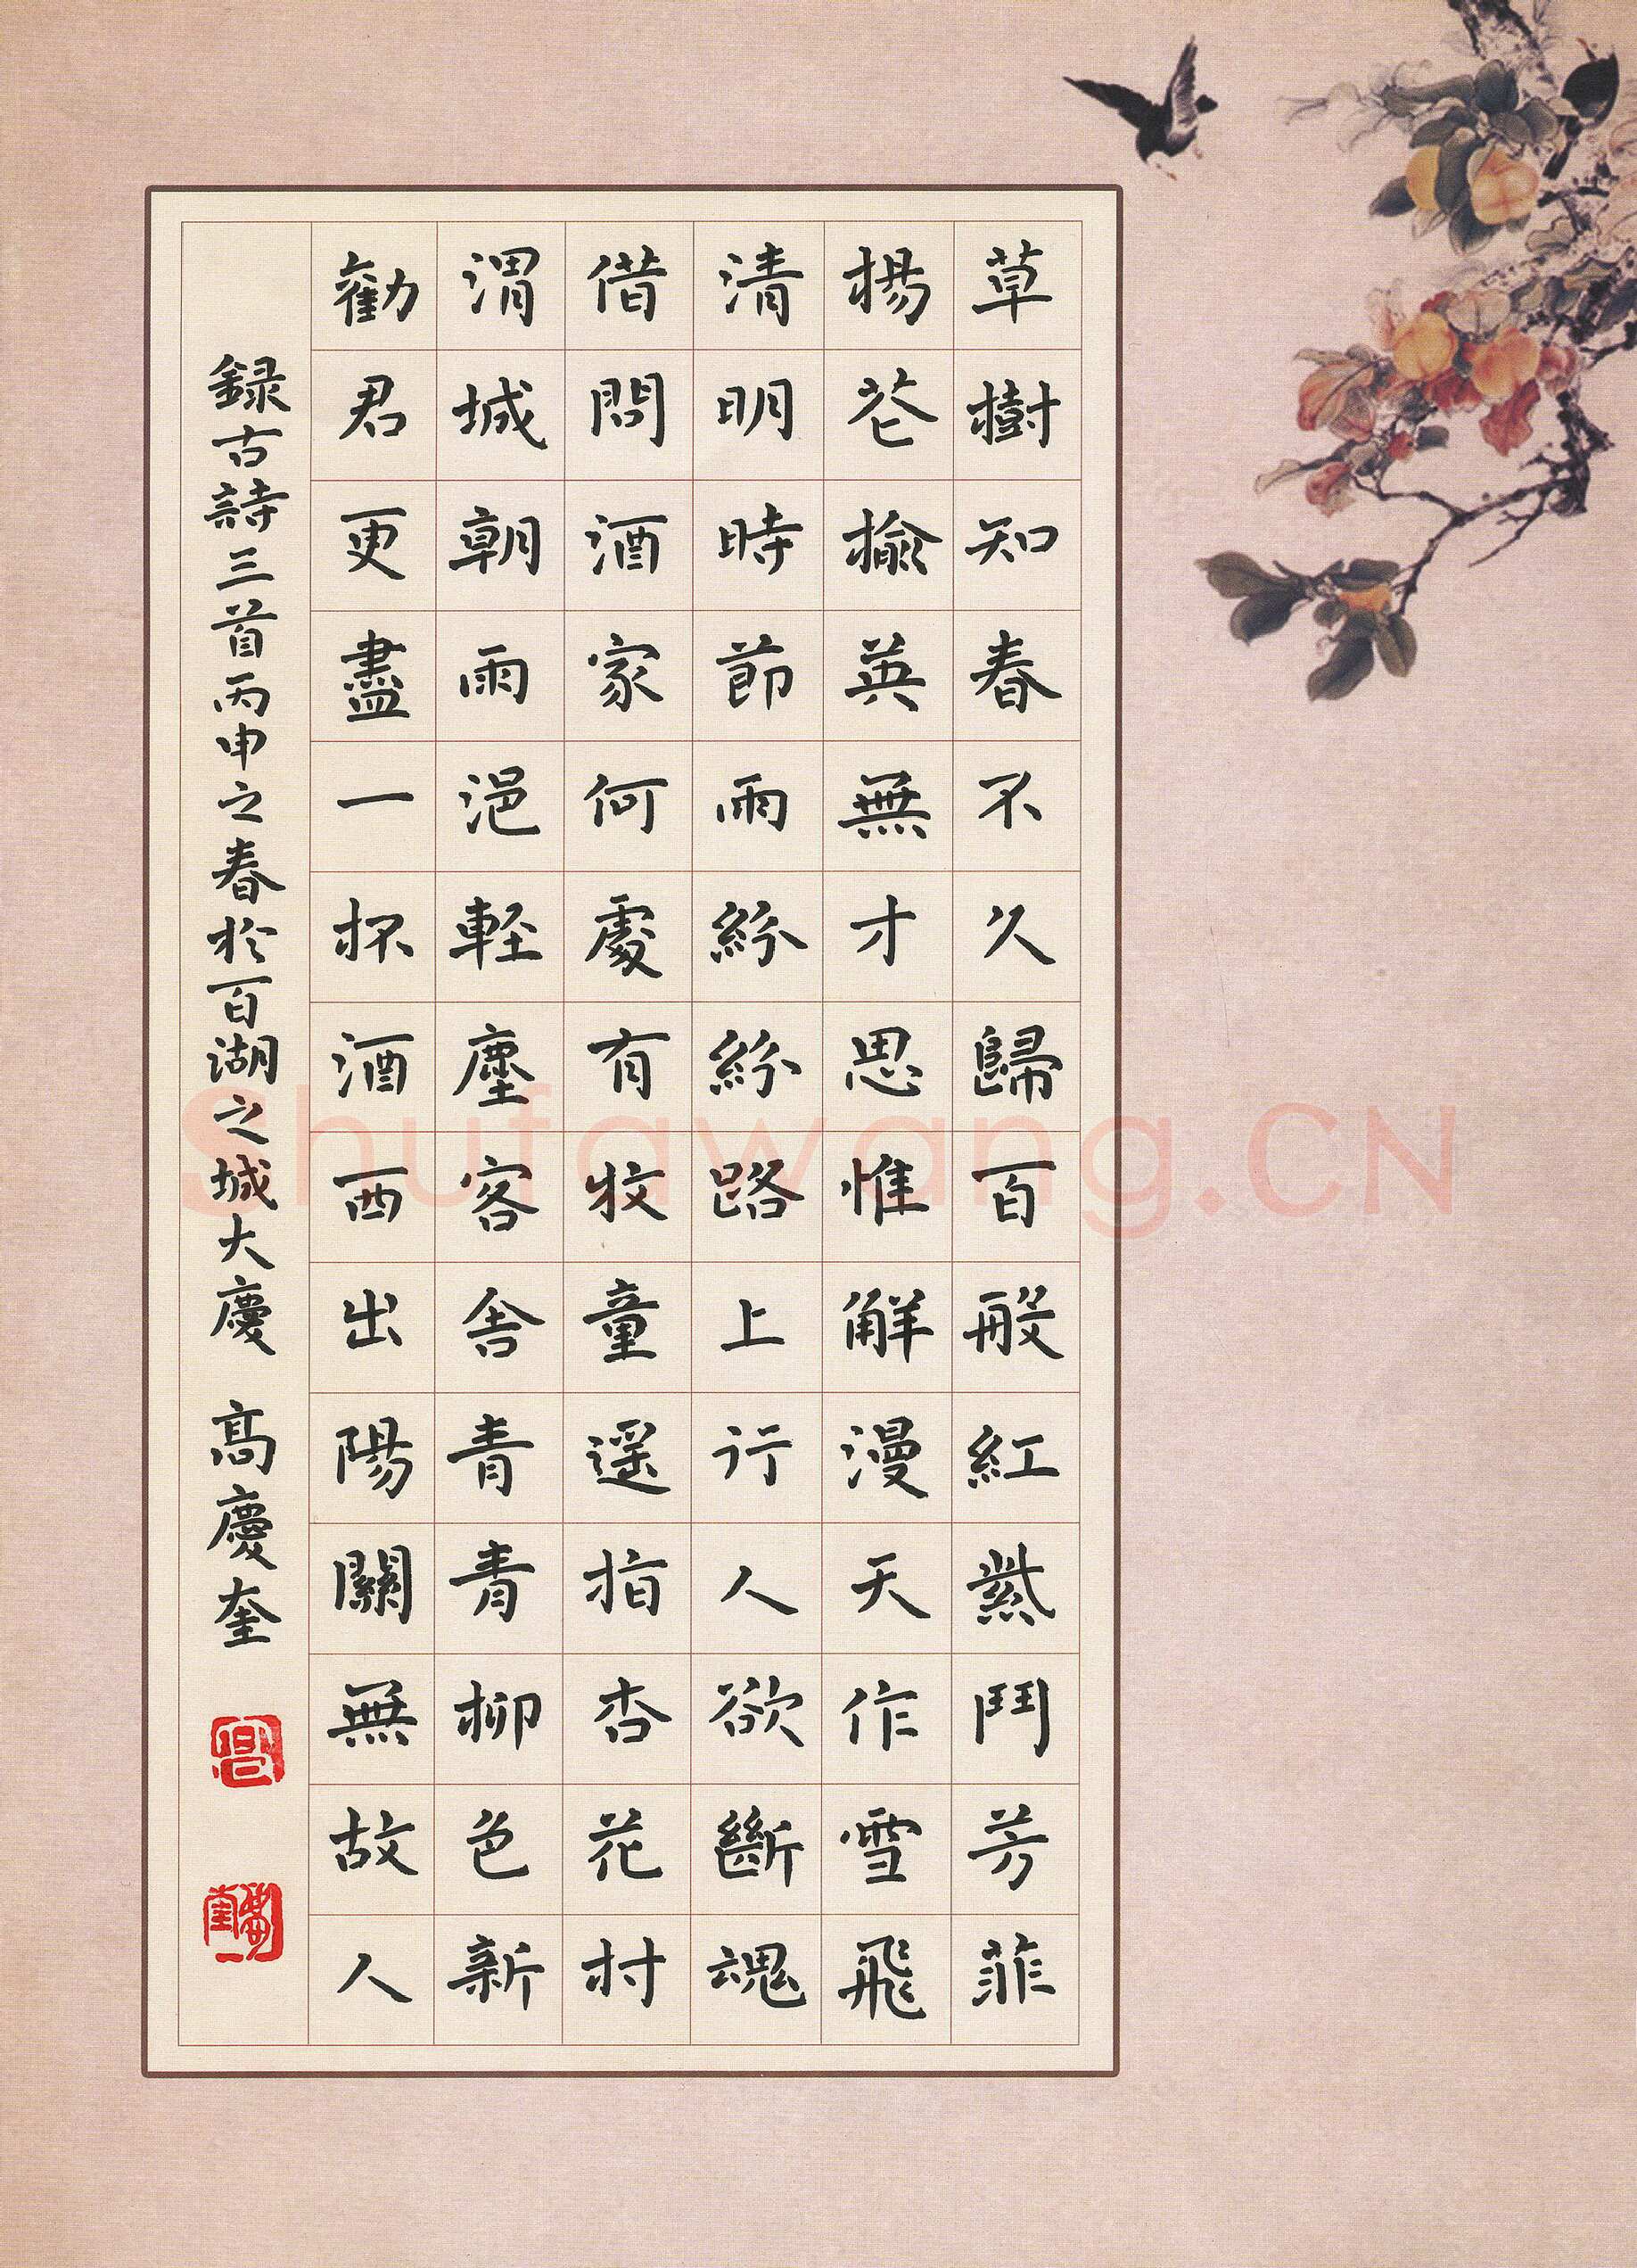 草樹知春不久歸百般紅紫鬥芳菲
楊花榆英無才思惟解漫天作雪飛
清明時節雨紛紛路上行人欲斷魂
借問酒家何處有牧童遥指杏花村
渭城朝雨浥輕塵客舍青青柳色新
勸君更盡一杯酒西出陽關無故人
録古詩三首丙申之春於百湖之城大慶 高慶奎
Shufawang.CN